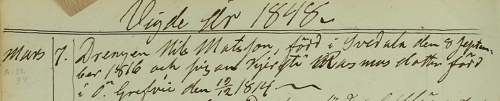 Vigde År 1848
Mars 7. Drengen Nils Matsson, född i Svedala den 8 Septem-
ber 1816 och pigan Kjersti Rasmus dotter född
i Ö. Grefvie den 12/12 1814